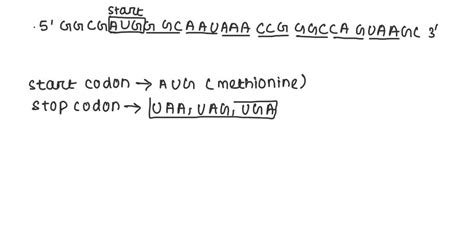 start
.5' GGCG AUG G GCAAUAAA CCG GGCCA GUAAGC 3'
start codon → AUG (methionine)
stop codon → UAA, UAG, UGA